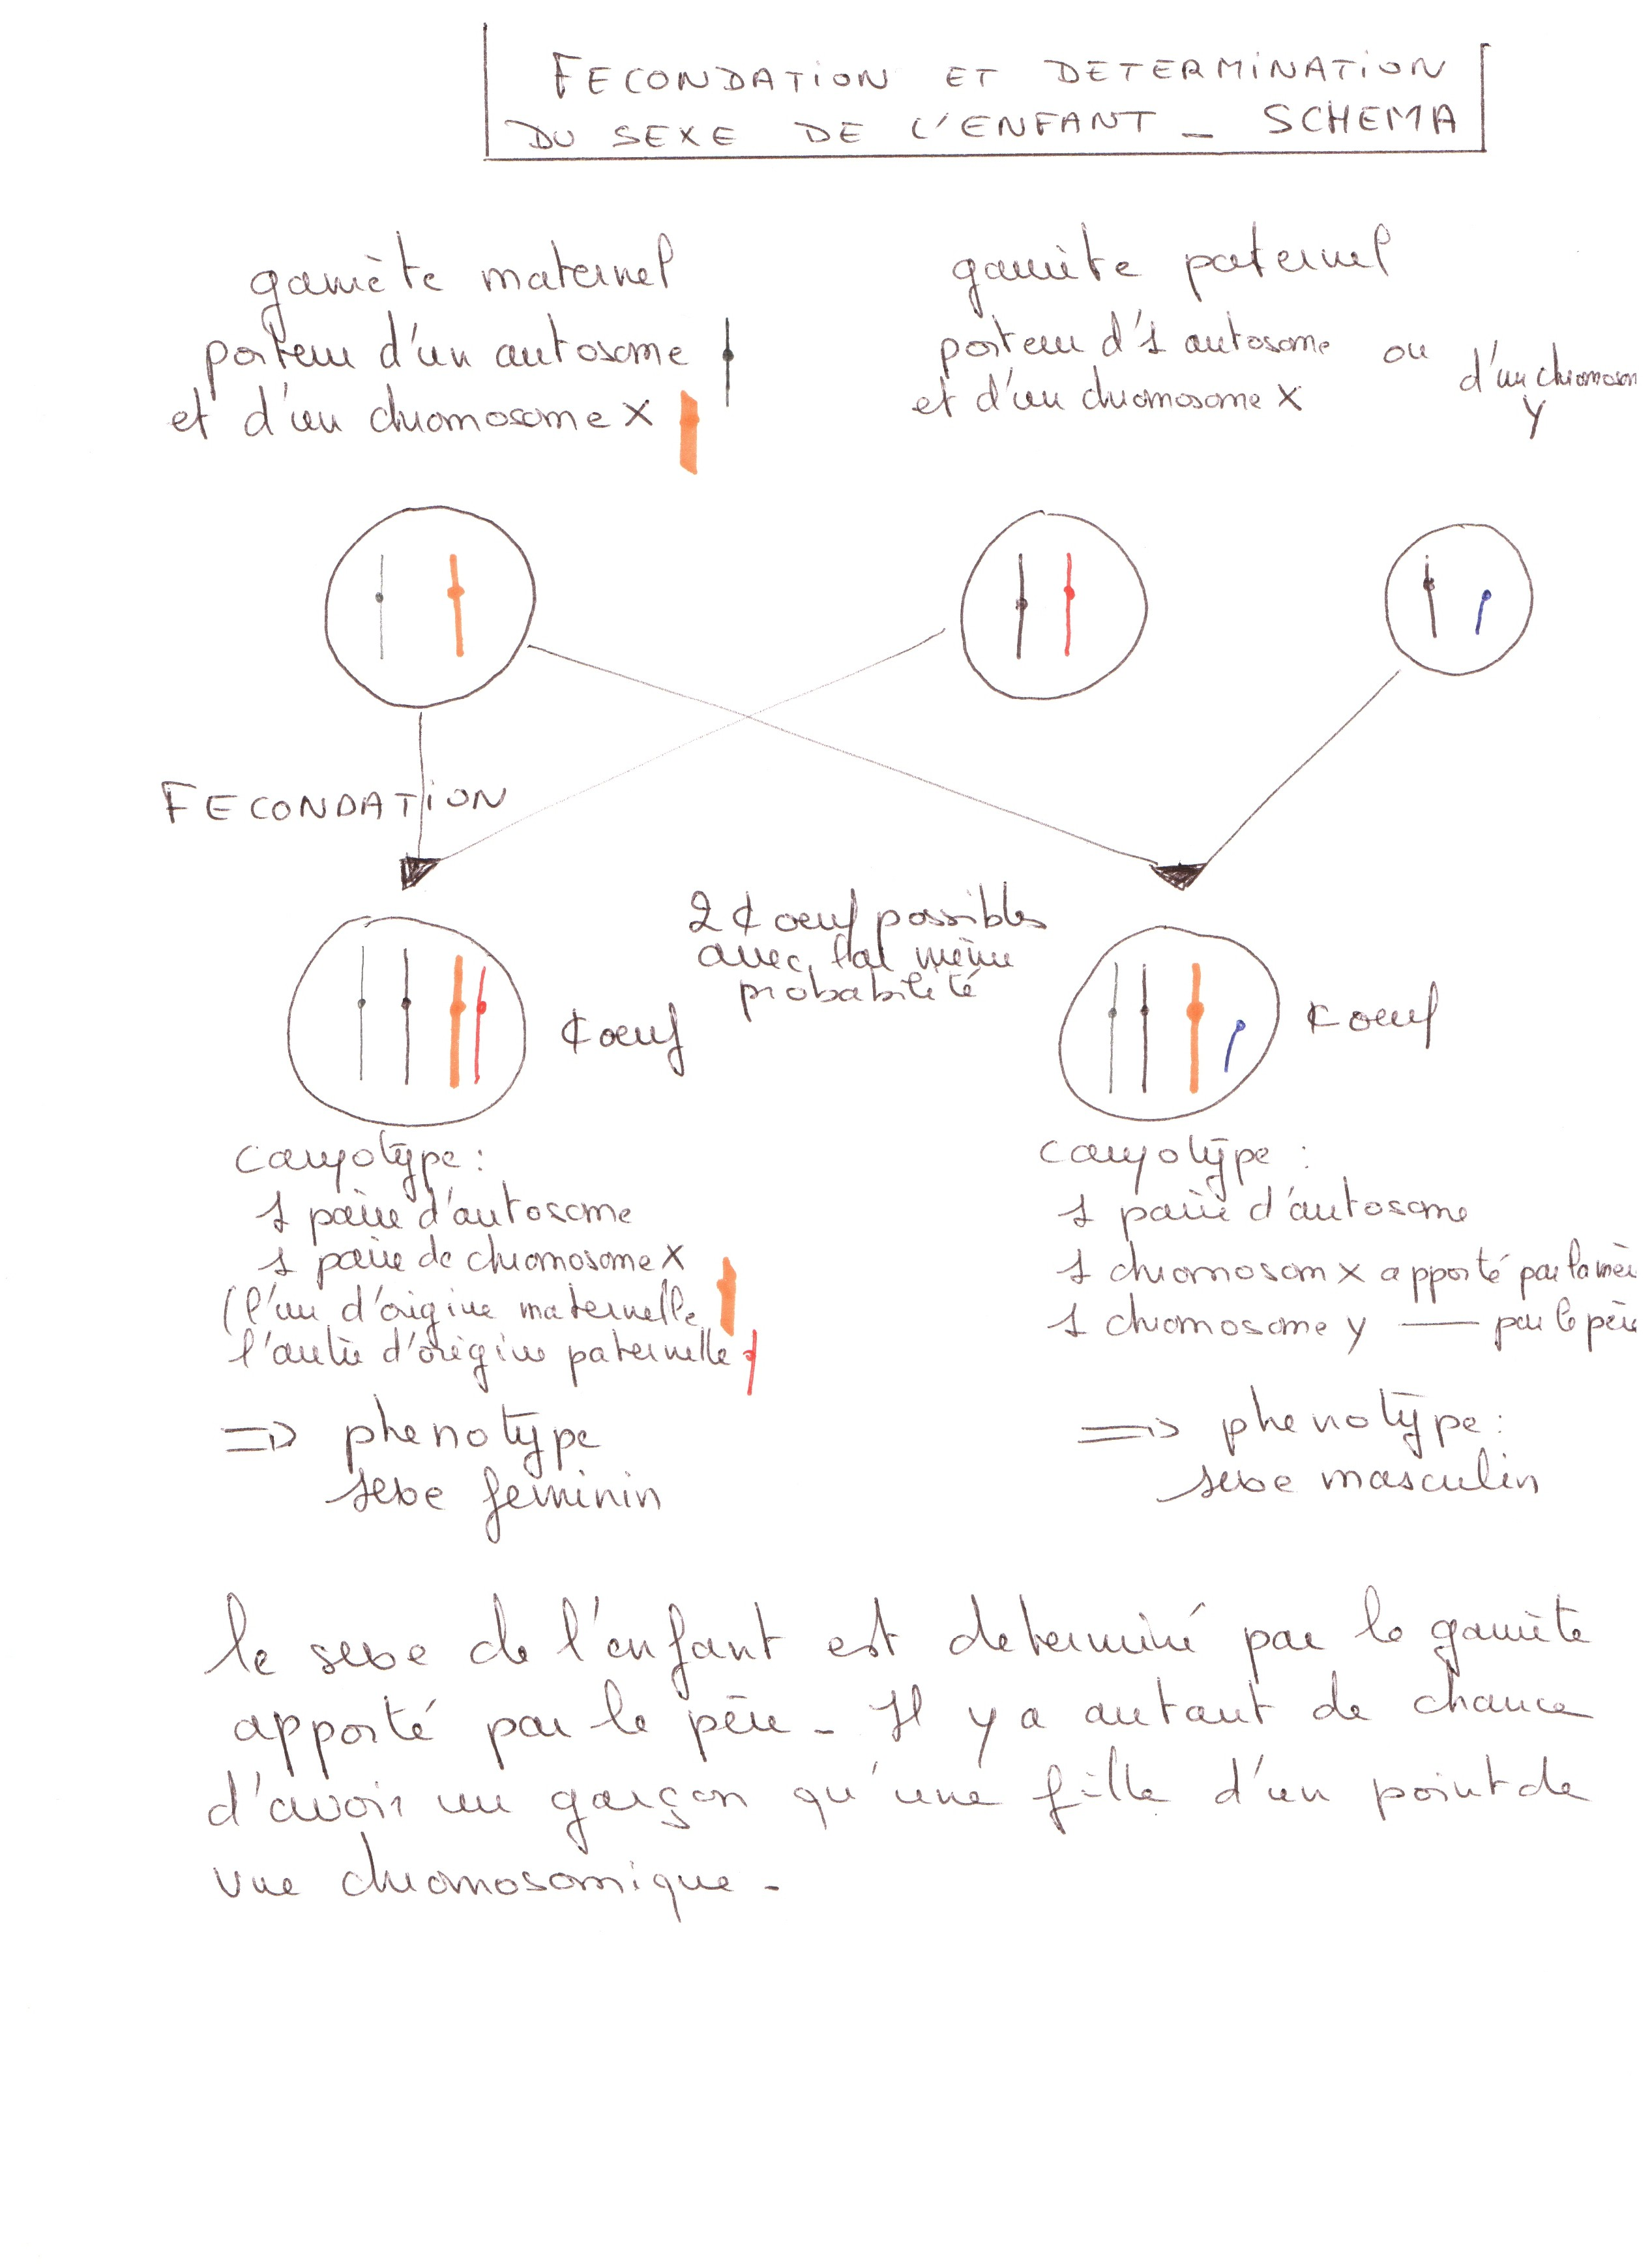 FECONDATION ET DETERMINATION
DU SEXE DE L'ENFANT _ SCHEMA
gamète maternel
porteur d'un autosome
et d'un chromosome X
gamète paternel
porteur d'1 autosome
et d'un chromosome X
ou
d'un chromosom
Y
FECONDATION
2 ¢ oeuf possibles
avec la même
probabilité
¢ oeuf
¢ oeuf
caryotype :
1 paire d'autosome
1 paire de chromosome X
(l'un d'origine maternelle
l'autre d'origine paternelle
=> phenotype
sexe feminin
caryotype :
1 paire d'autosome
1 chromosom X apporté par la mèr
1 chromosome Y — par le père
=> phenotype :
sexe masculin
le sexe de l'enfant est determiné par le gamète
apporté par le père - Il y a autant de chance
d'avoir un garçon qu'une fille d'un point de
vue chromosomique -